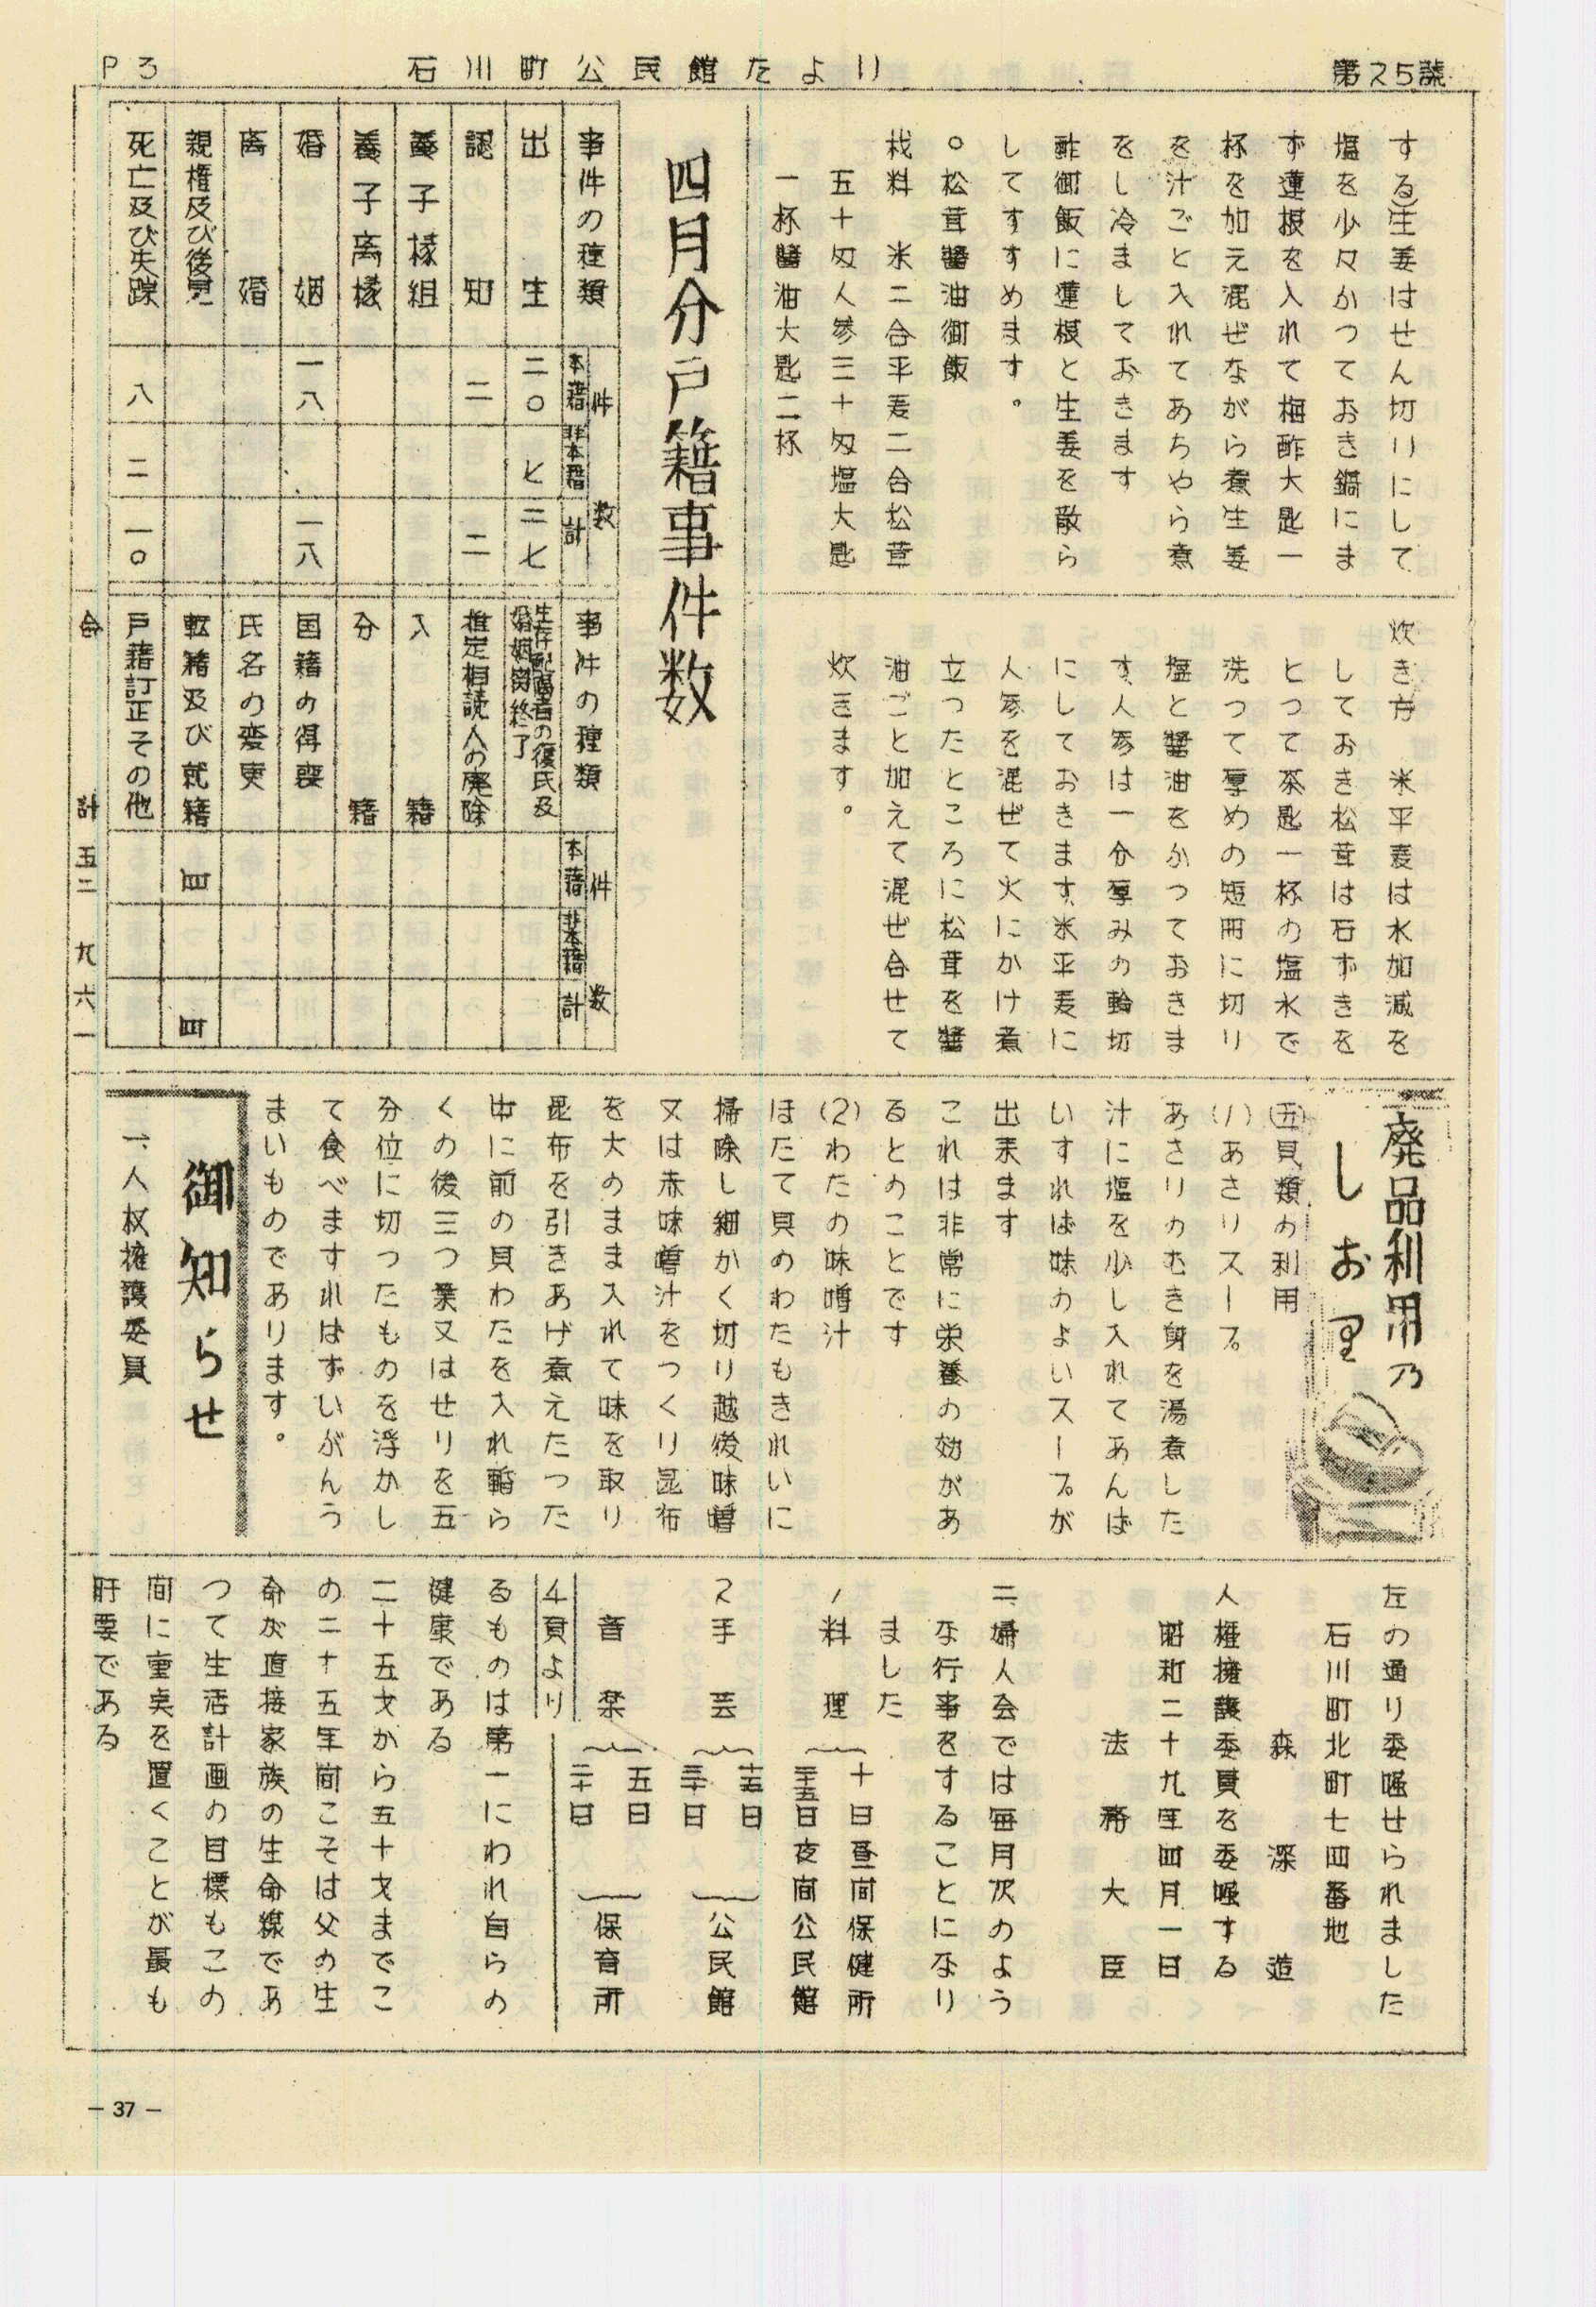 P3
石川町公民館たより
第25號
する)生姜はせん切りにして
塩を少々かつておき鍋にま
ず蓮根を入れて梅酢大匙一
杯を加え混ぜながら煮生姜
を汁ごと入れてあちやら煮
をし冷ましておきます
酢御飯に蓮根と生姜を散ら
してすすめます。
○松茸醬油御飯
材料　米二合平麦二合松茸
五十匁人参三十匁塩大匙
一杯醬油大匙二杯
炊き方　米平麦は水加減を
しておき松茸は石ずきを
とつて茶匙一杯の塩水で
洗つて厚めの短冊に切り
塩と醬油をかつておきま
す、人参は一分厚みの輪切
にしておきます、米平麦に
人参を混ぜて火にかけ煮
立つたところに松茸を醬
油ごと加えて混ぜ合せて
炊きます。
四月分戸籍事件数
事件の種類　件数　本籍　非本籍　計
出生　二〇　七　二七
認知　二　二
養子縁組
養子离縁
婚姻　一八　一八
离婚
親権及び後見
死亡及び失踪　八　二　一〇
事件の種類　件数　本籍　非本籍　計
生存配偶者の復氏及
婚姻関終了
推定相続人の廃除
入籍
分籍
国籍の得喪
氏名の変更
転籍及び就籍　四　四
戸籍訂正その他
合計　五二　九　六一
廃品利用乃
しおり
(五)貝類の利用
(1)あさりスープ
あさりのむき身を湯煮した
汁に塩を少し入れてあんば
いすれば味のよいスープが
出来ます
これは非常に栄養の効があ
るとのことです
(2)わたの味噌汁
ほたて貝のわたもきれいに
掃除し細かく切り越後味噌
又は赤味噌汁をつくり昆布
を大のまま入れて味を取り
昆布を引きあげ煮えたつた
中に前の貝わたを入れ暫ら
くの後三つ葉又はせりを五
分位に切つたものを浮かし
て食べますればずいがんう
まいものであります。
御知らせ
一、人权擁護委員
左の通り委嘱せられました
石川町北町七四番地
森　深造
人権擁護委員を委嘱する
昭和二十九年四月一日
法務大臣
二、婦人会では毎月次のよう
な行事をすることになり
ました
1料理　十日昼間保健所
二十五日夜間公民館
2手芸　十五日　三十日　公民館
音楽　五日　二十日　保育所
4頁より
るものは第一にわれ自らの
健康である
二十五才から五十才までこ
の二十五年間こそは父の生
命が直接家族の生命線であ
つて生活計画の目標もこの
間に重点を置くことが最も
肝要である
- 37 -